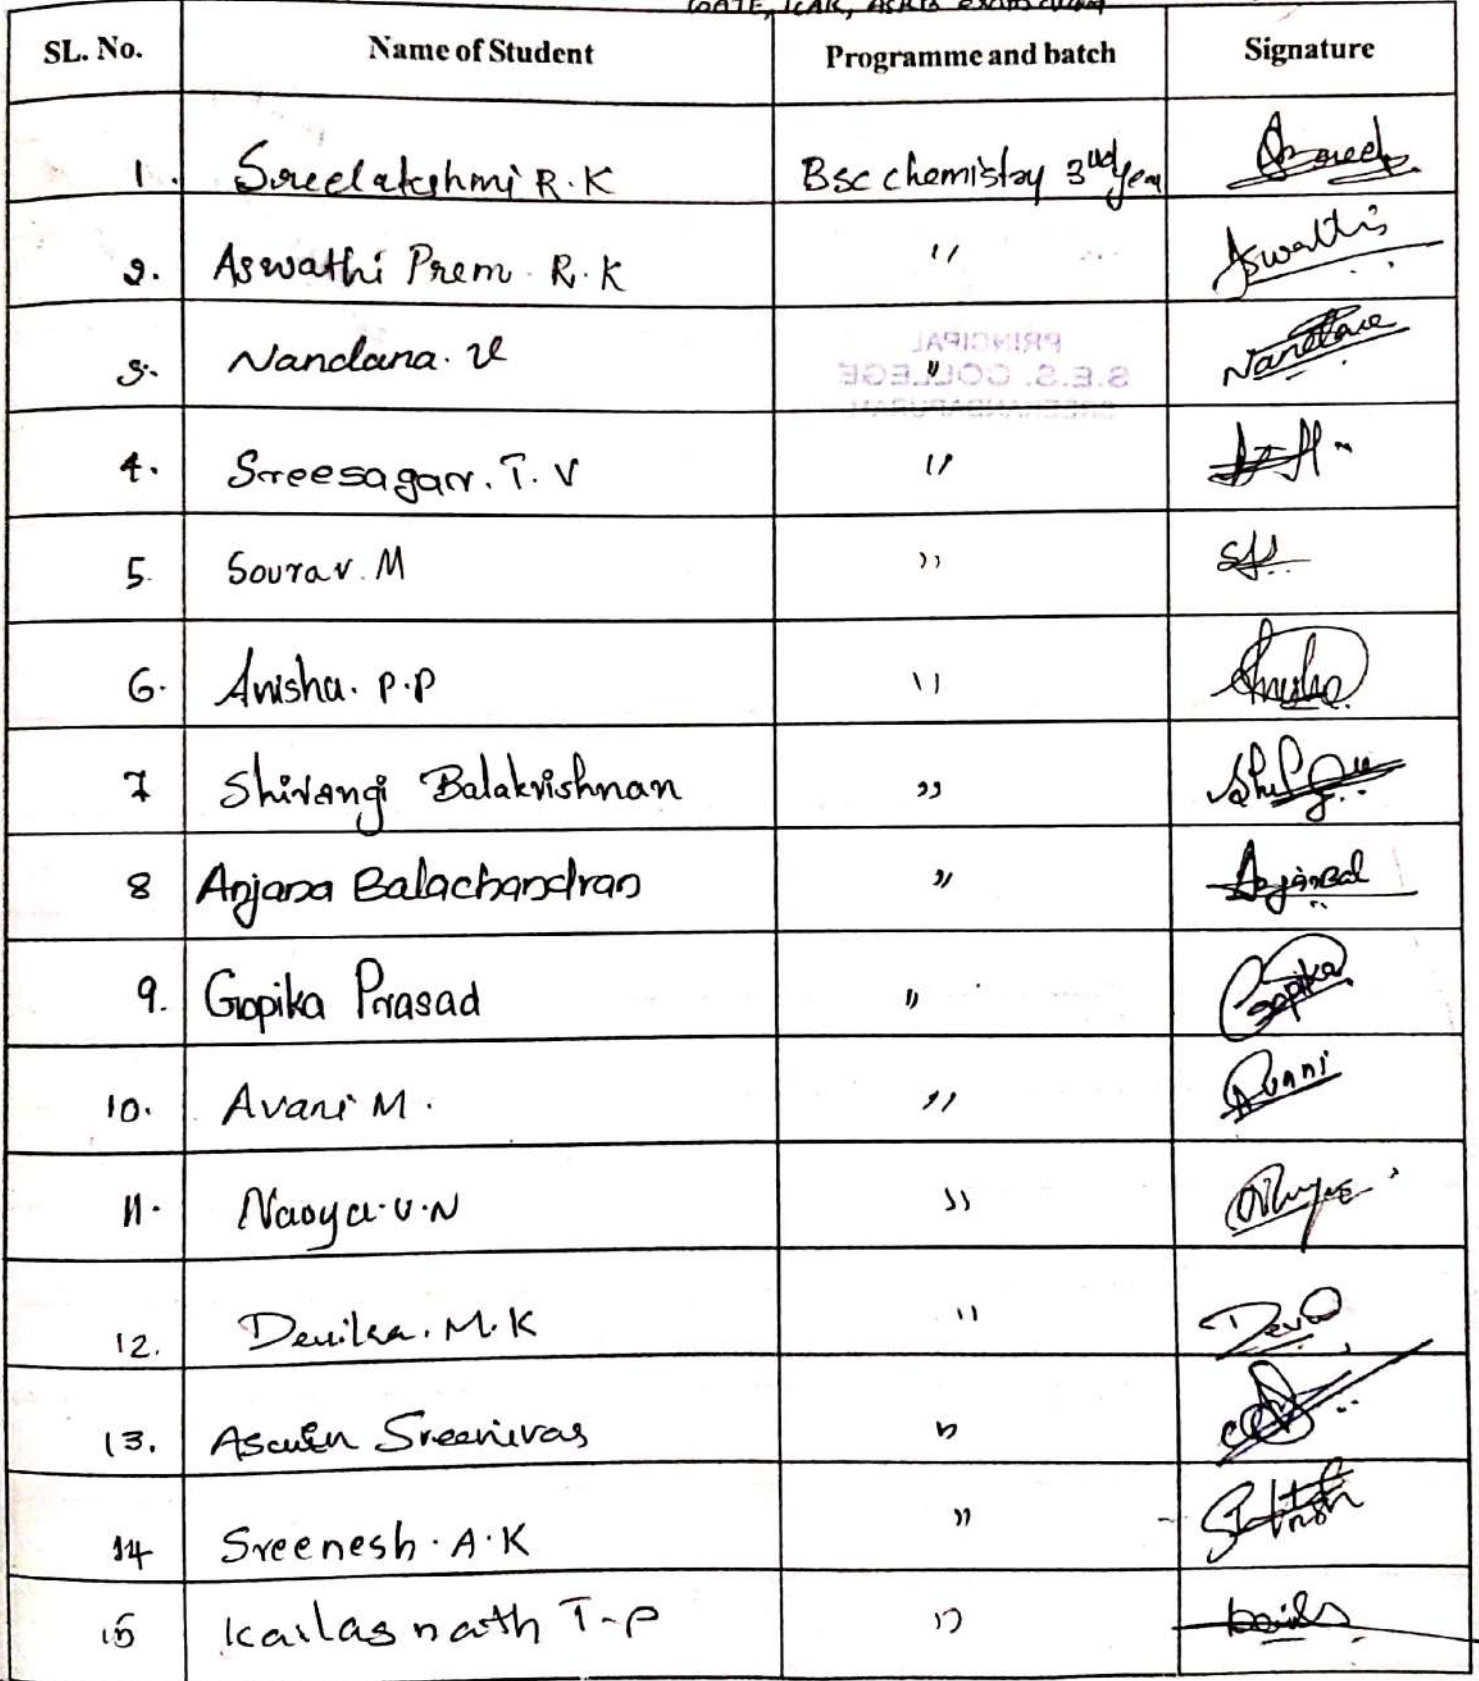 GATE, ICAR, 
SL. No. Name of Student Programme and batch Signature
1. Sreelakshmi R.K Bsc chemistry 3rd year Sree
2. Aswathi Prem. R.K " Aswathi
3. Nandana. V " Nandana
PRINCIPAL
S.E.S. COLLEGE
SREEKANDAPURAM
4. Sreesagar. T. V "
5. Sourav. M "
6. Anisha. P.P " Anisha
7 Shivangi Balakrishnan "
8 Anjana Balachandran " AnjanaBal
9. Gopika Prasad " Gopika
10. Avani M. " Avani
11. Navya. U.N "
12. Devika. M.K "
13. Aswin Sreenivas "
14 Sreenesh. A.K "
15 Kailasnath T-P "